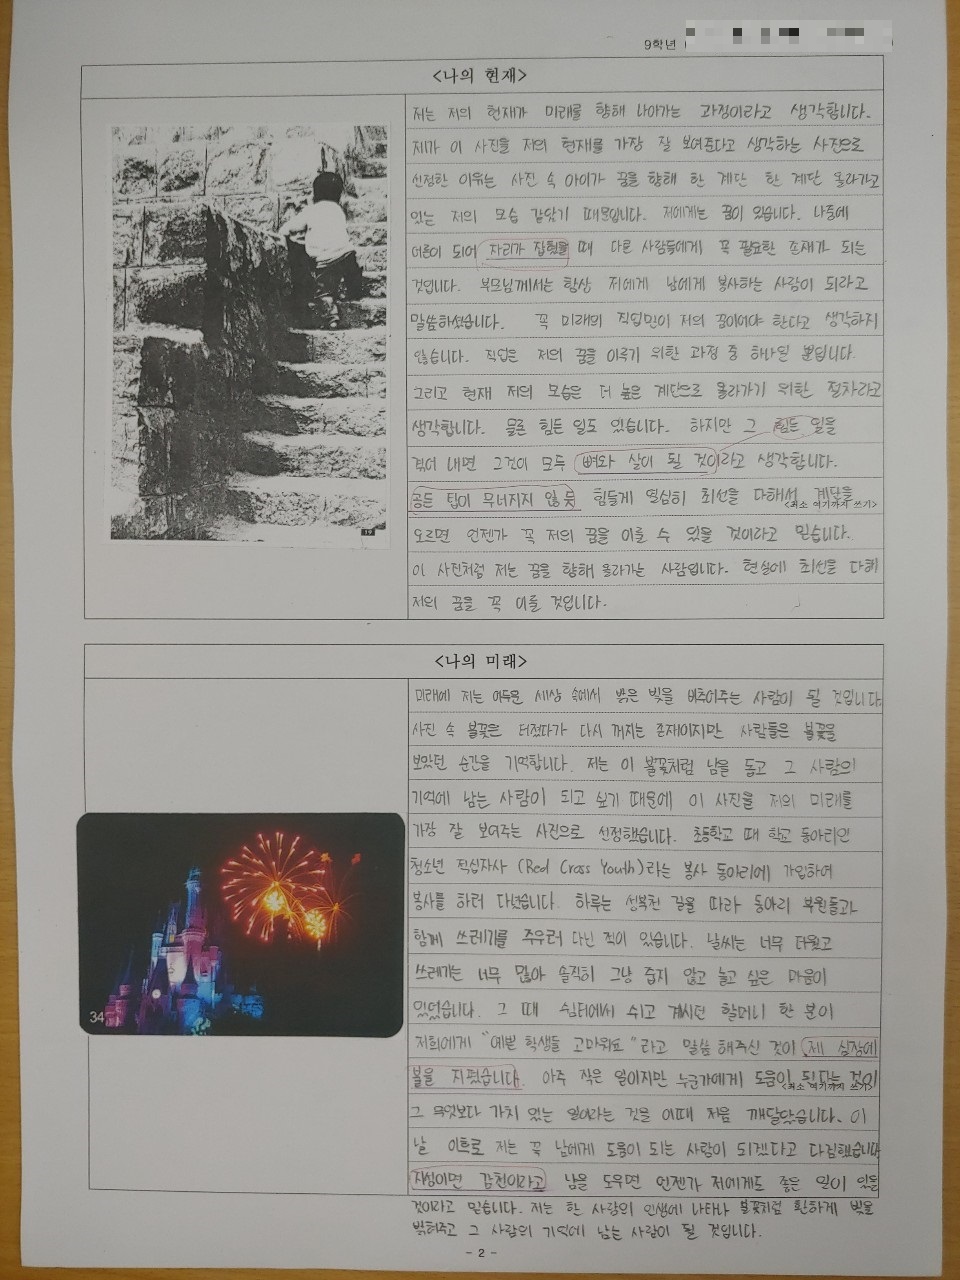 9학년
<나의 현재>
저는 저의 현재가 미래를 향해 나아가는 과정이라고 생각합니다.
제가 이 사진을 저의 현재를 가장 잘 보여준다고 생각하는 사진으로
선정한 이유는 사진 속 아이가 꿈을 향해 한 계단 한 계단 올라가고
있는 저의 모습 같았기 때문입니다. 저에게는 꿈이 있습니다. 나중에
어른이 되어 자리가 잡혔을 때 다른 사람들에게 꼭 필요한 존재가 되는
것입니다. 부모님께서는 항상 저에게 남에게 봉사하는 사람이 되라고
말씀하셨습니다. 꼭 미래의 직업만이 저의 꿈이어야 한다고 생각하지
않습니다. 직업은 저의 꿈을 이루기 위한 과정 중 하나일 뿐입니다.
그리고 현재 저의 모습은 더 높은 계단으로 올라가기 위한 절차라고
생각합니다. 물론 힘든 일도 있습니다. 하지만 그 힘든 일을
겪어 내면 그것이 모두 뼈와 살이 될 것이라고 생각합니다.
공든 탑이 무너지지 않 듯 힘들게 열심히 최선을 다해서 계단을
<최소 여기까지 쓰기>
오르면 언젠가 꼭 저의 꿈을 이룰 수 있을 것이라고 믿습니다.
이 사진처럼 저는 꿈을 향해 올라가는 사람입니다. 현실에 최선을 다해
저의 꿈을 꼭 이룰 것입니다.
19
<나의 미래>
미래에 저는 어두운 세상 속에서 밝은 빛을 비추어주는 사람이 될 것입니다.
사진 속 불꽃은 터졌다가 다시 꺼지는 존재이지만 사람들은 불꽃을
보았던 순간을 기억합니다. 저는 이 불꽃처럼 남을 돕고 그 사람의
기억에 남는 사람이 되고 싶기 때문에 이 사진을 저의 미래를
가장 잘 보여주는 사진으로 선정했습니다. 초등학교 때 학교 동아리인
청소년 적십자사 (Red Cross Youth)라는 봉사 동아리에 가입하여
봉사를 하러 다녔습니다. 하루는 성북천 길을 따라 동아리 부원들과
함께 쓰레기를 주우러 다닌 적이 있습니다. 날씨는 너무 더웠고
쓰레기는 너무 많아 솔직히 그냥 줍지 않고 놀고 싶은 마음이
있었습니다. 그 때 쉼터에서 쉬고 계시던 할머니 한 분이
저희에게 "예쁜 학생들 고마워요"라고 말씀 해주신 것이 제 심장에
불을 지폈습니다. 아주 작은 일이지만 누군가에게 도움이 된다는 것이
<최소 여기까지 쓰기>
그 무엇보다 가치 있는 일이라는 것을 이때 처음 깨달았습니다. 이
날 이후로 저는 꼭 남에게 도움이 되는 사람이 되겠다고 다짐했습니다
지성이면 감천이라고 남을 도우면 언젠가 저에게도 좋은 일이 있을
것이라고 믿습니다. 저는 한 사람의 인생에 나타나 불꽃처럼 환하게 빛을
밝혀주고 그 사람의 기억에 남는 사람이 될 것입니다.
34
- 2 -